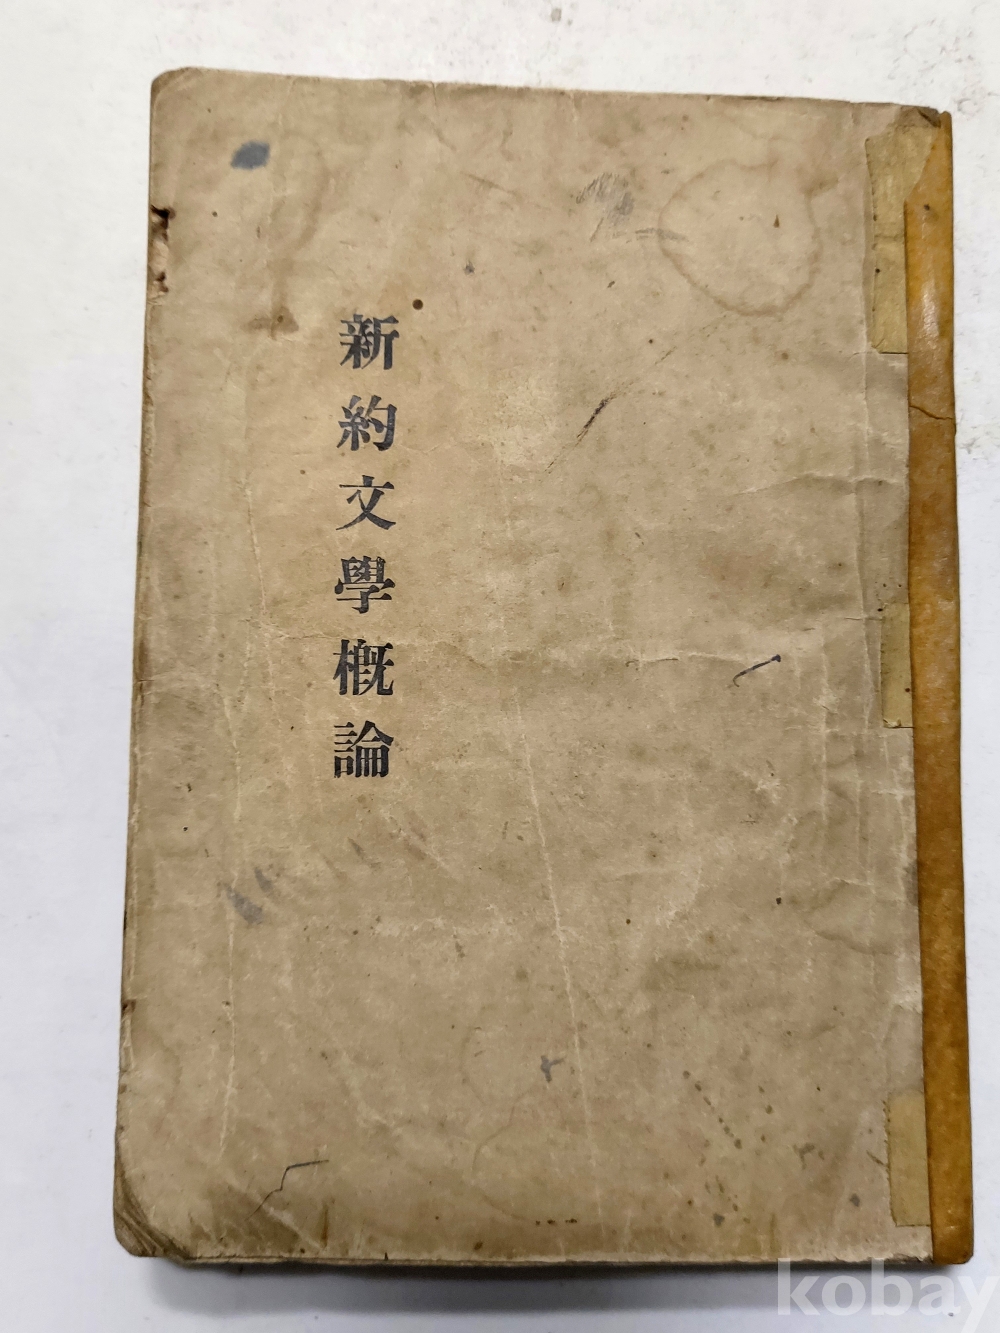 新約文學概論
kobay